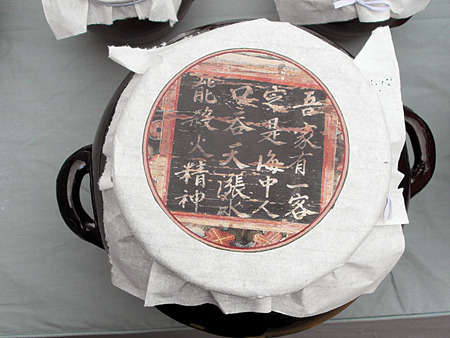 吾家有一客
定是海中人
口吞天漲水
能殺火精神